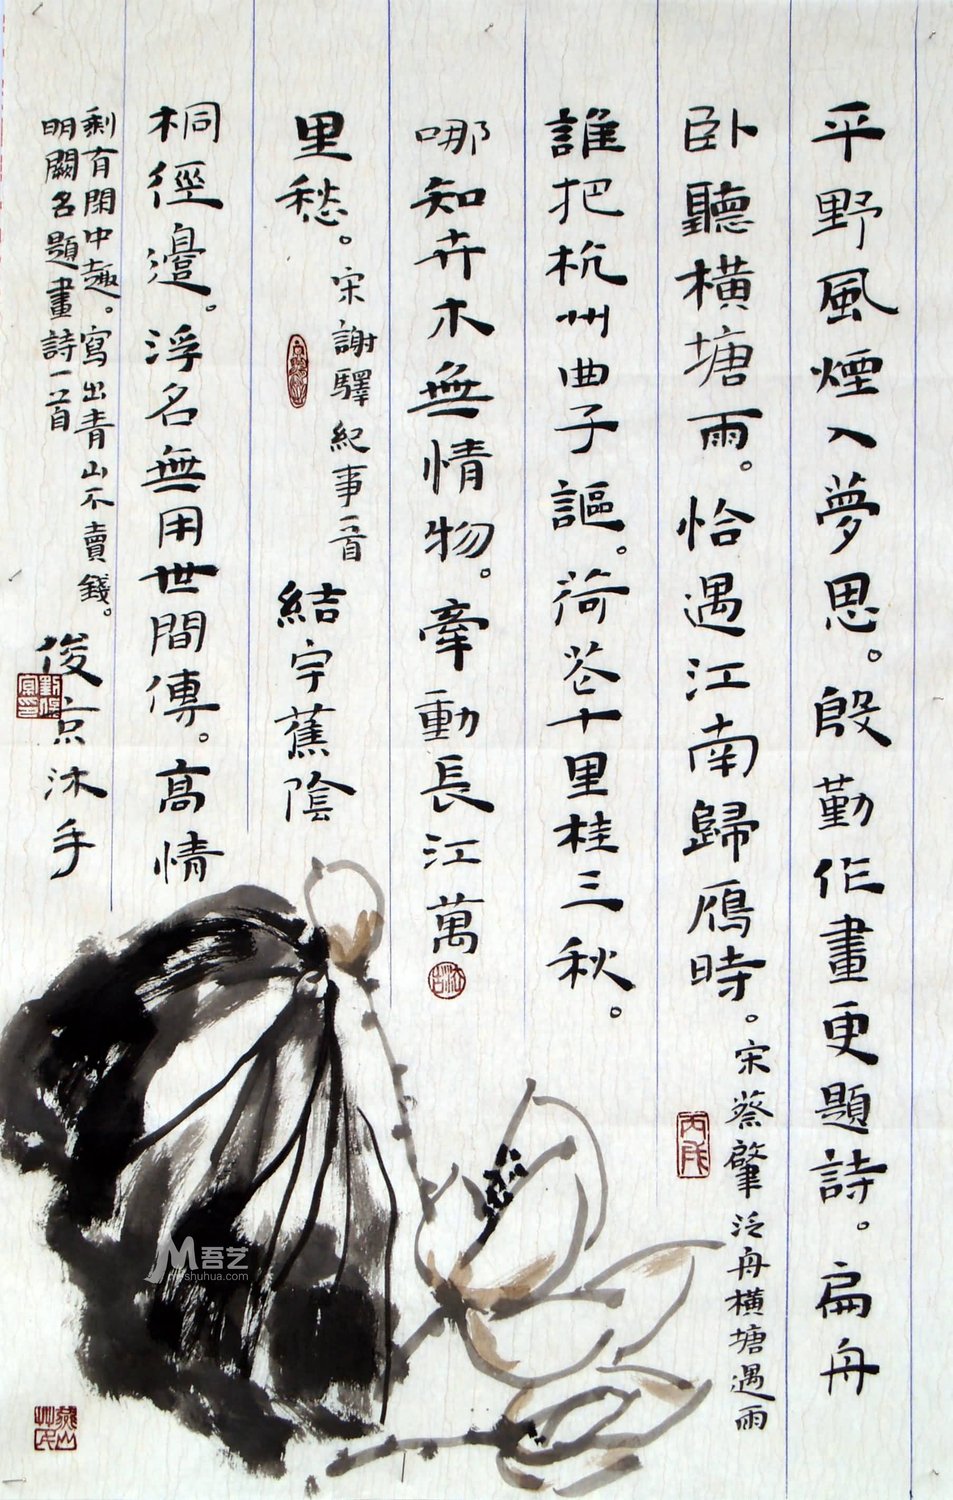 平野風煙入夢思。殷勤作畫更題詩。扁舟
卧聽橫塘雨。恰遇江南歸鴈時。宋蔡肇泛舟橫塘遇雨
誰把杭州曲子謳。荷花十里桂三秋。
哪知卉木無情物。牽動長江萬
里愁。宋謝驛紀事一首 結宇蕉陰
桐徑邊。浮名無用世間傳。高情
剩有閑中趣。寫出青山不賣錢。
明闕名題畫詩一首 俊京沐手
吾艺